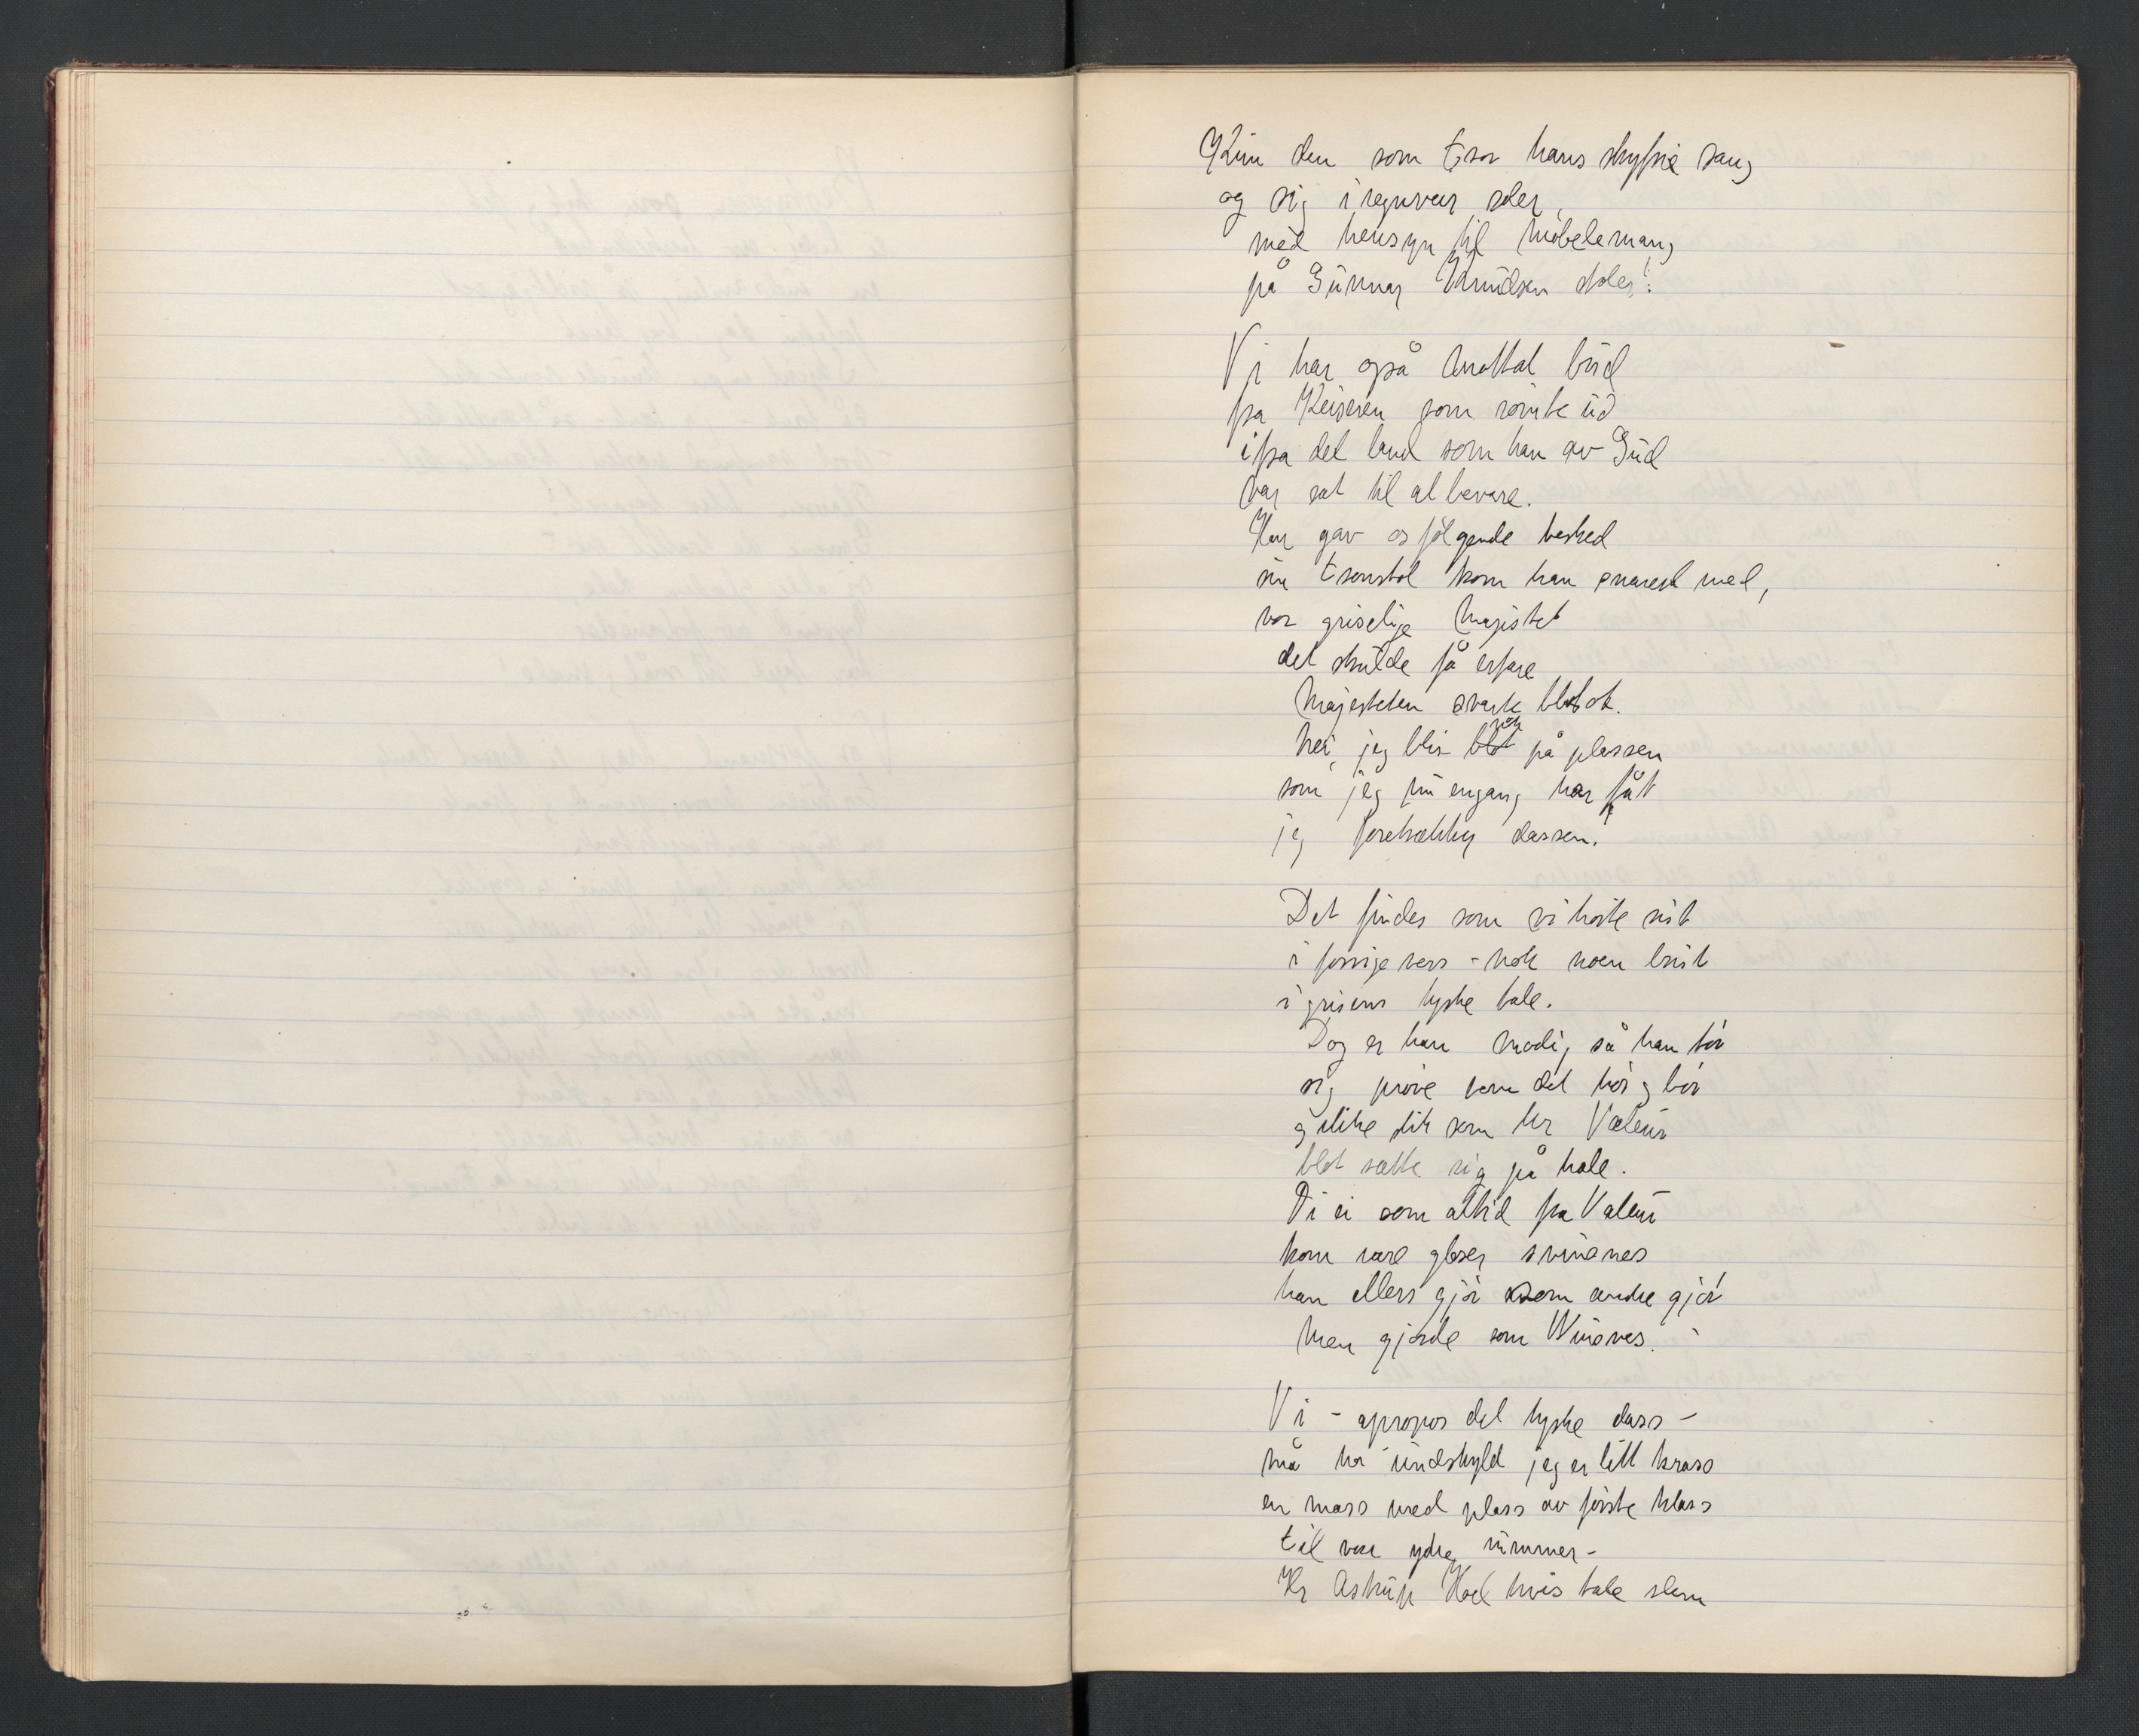 Kun den som tror hans skyfrie sang
og sig i regnveir soler,
med hensyn til møbelemang
på Gunnar Knudsen stoler!
Vi har også mottat bud
fra Keiseren som rømte ud
ifra det land som han av Gud
var sat til at bevare.
Han gav os følgende besked
sin tronstol kom han snarest med,
vor griselige majestet
det skulde få erfare
Majesteten svarte blot at.
Nei, jeg blir nok på plassen
som jeg nu engang har fåt
jeg foretrækker dassen!
Det findes som vi hørte sist
i forrige vers - nok noen brist
i grisens tyske tale.
Dog er han modig så han tør
sig prøve som det hør og bør
og ikke slik som hr Valeur
blot sætte sig på hale.
Ti ei som altid fra Valeur
kom bare gloser svinenes
han ellers gjør som andre gjør
men gjorde som Winenes.
Vi - apropos det tyske dass -
må ha undskyld jeg er litt krass
en mass med plass av første klass
til vore ydre rummer -
Hr Astrup Hoel hvis tale slem